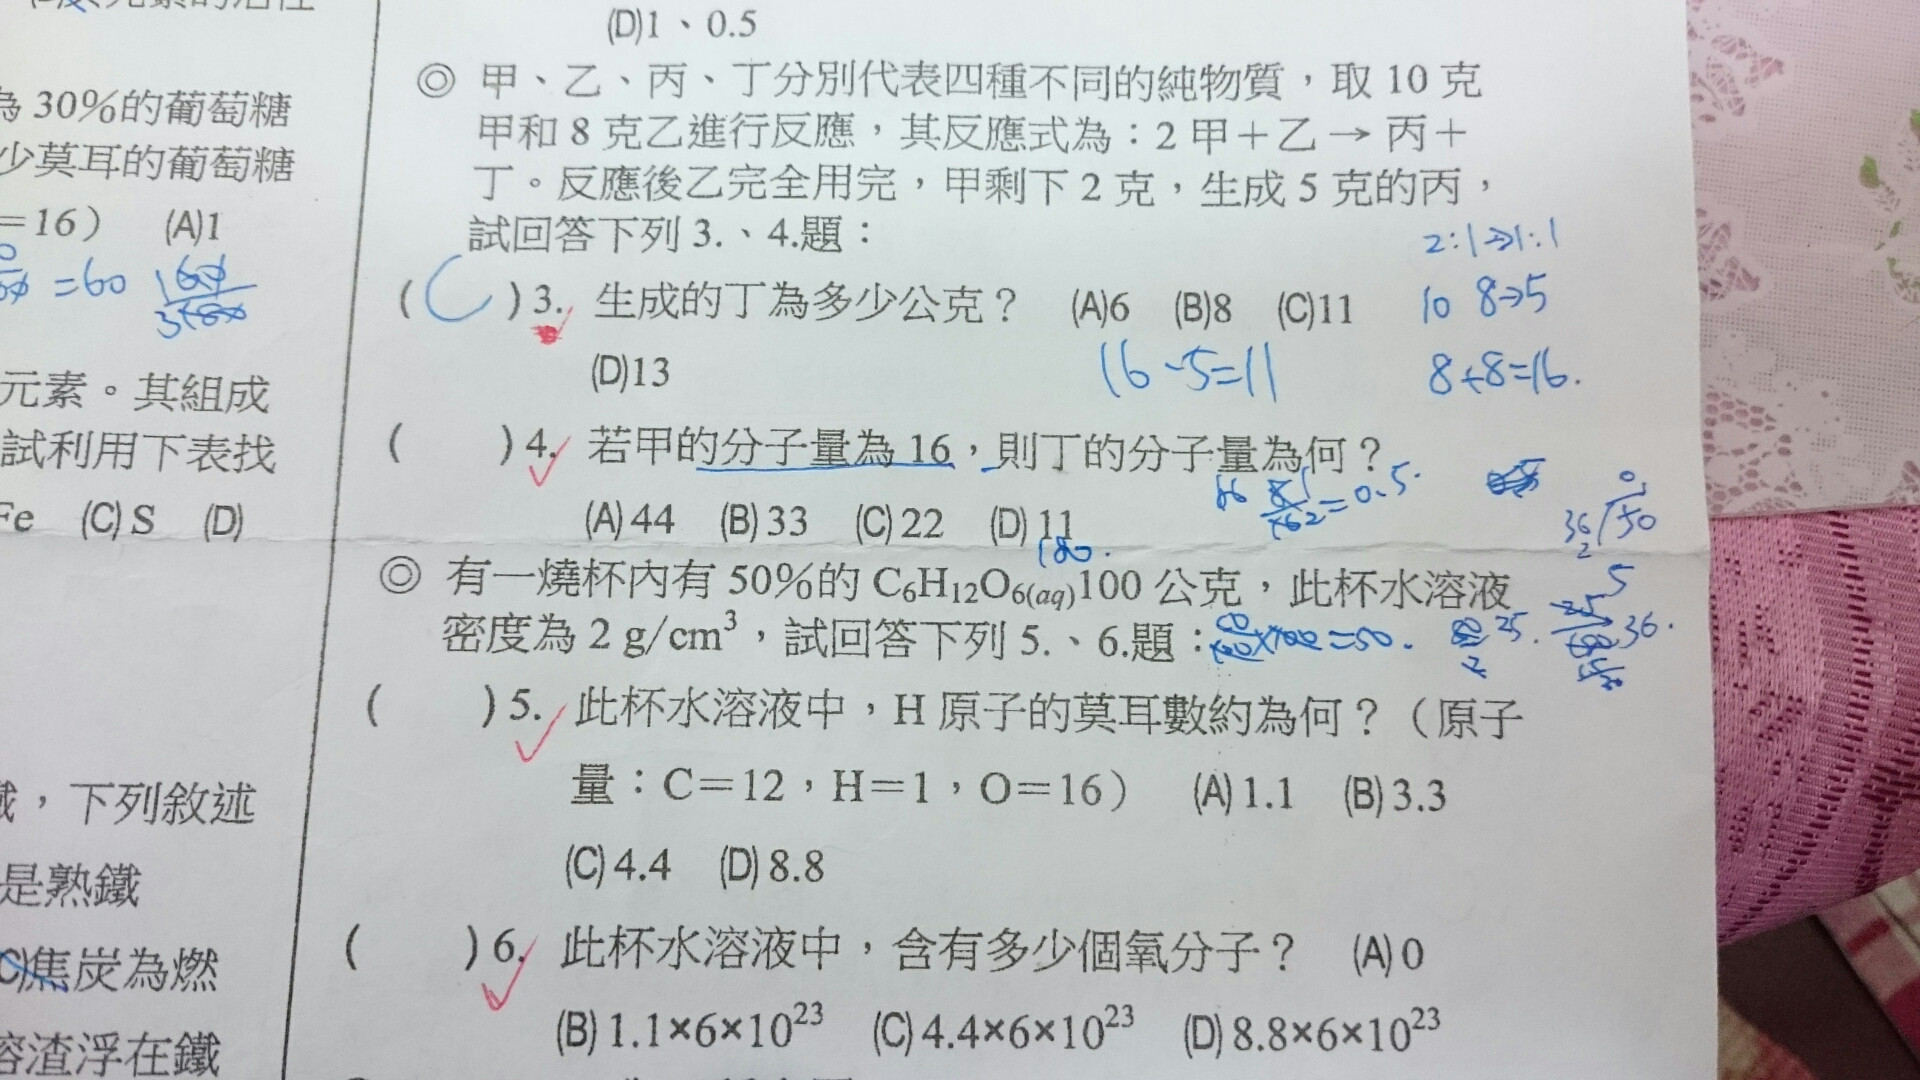 為 30%的葡萄糖
少莫耳的葡萄糖
=16） (A)1
=60
元素。其組成
試利用下表找
Fe (C) S (D)
，下列敘述
是熟鐵
C)焦炭為燃
溶渣浮在鐵
(D)1、0.5
◎ 甲、乙、丙、丁分別代表四種不同的純物質，取 10 克
甲和 8 克乙進行反應，其反應式為：2 甲＋乙→ 丙＋
丁。反應後乙完全用完，甲剩下 2 克，生成 5 克的丙，
試回答下列 3.、4.題：
2:1→1:1
( C )3. 生成的丁為多少公克？ (A)6 (B)8 (C)11
10 8→5
(D)13
16-5=11
8+8=16.
( )4. 若甲的分子量為 16，則丁的分子量為何？
=0.5.
(A) 44 (B) 33 (C) 22 (D) 11
180.
◎ 有一燒杯內有 50%的 C6H12O6(aq)100 公克，此杯水溶液
密度為 2 g/cm³，試回答下列 5.、6.題：
=50.
25.
36.
( )5. 此杯水溶液中，H 原子的莫耳數約為何？（原子
量：C＝12，H＝1，O＝16） (A) 1.1 (B) 3.3
(C) 4.4 (D) 8.8
( )6. 此杯水溶液中，含有多少個氧分子？ (A) 0
(B) 1.1×6×10²³ (C) 4.4×6×10²³ (D) 8.8×6×10²³